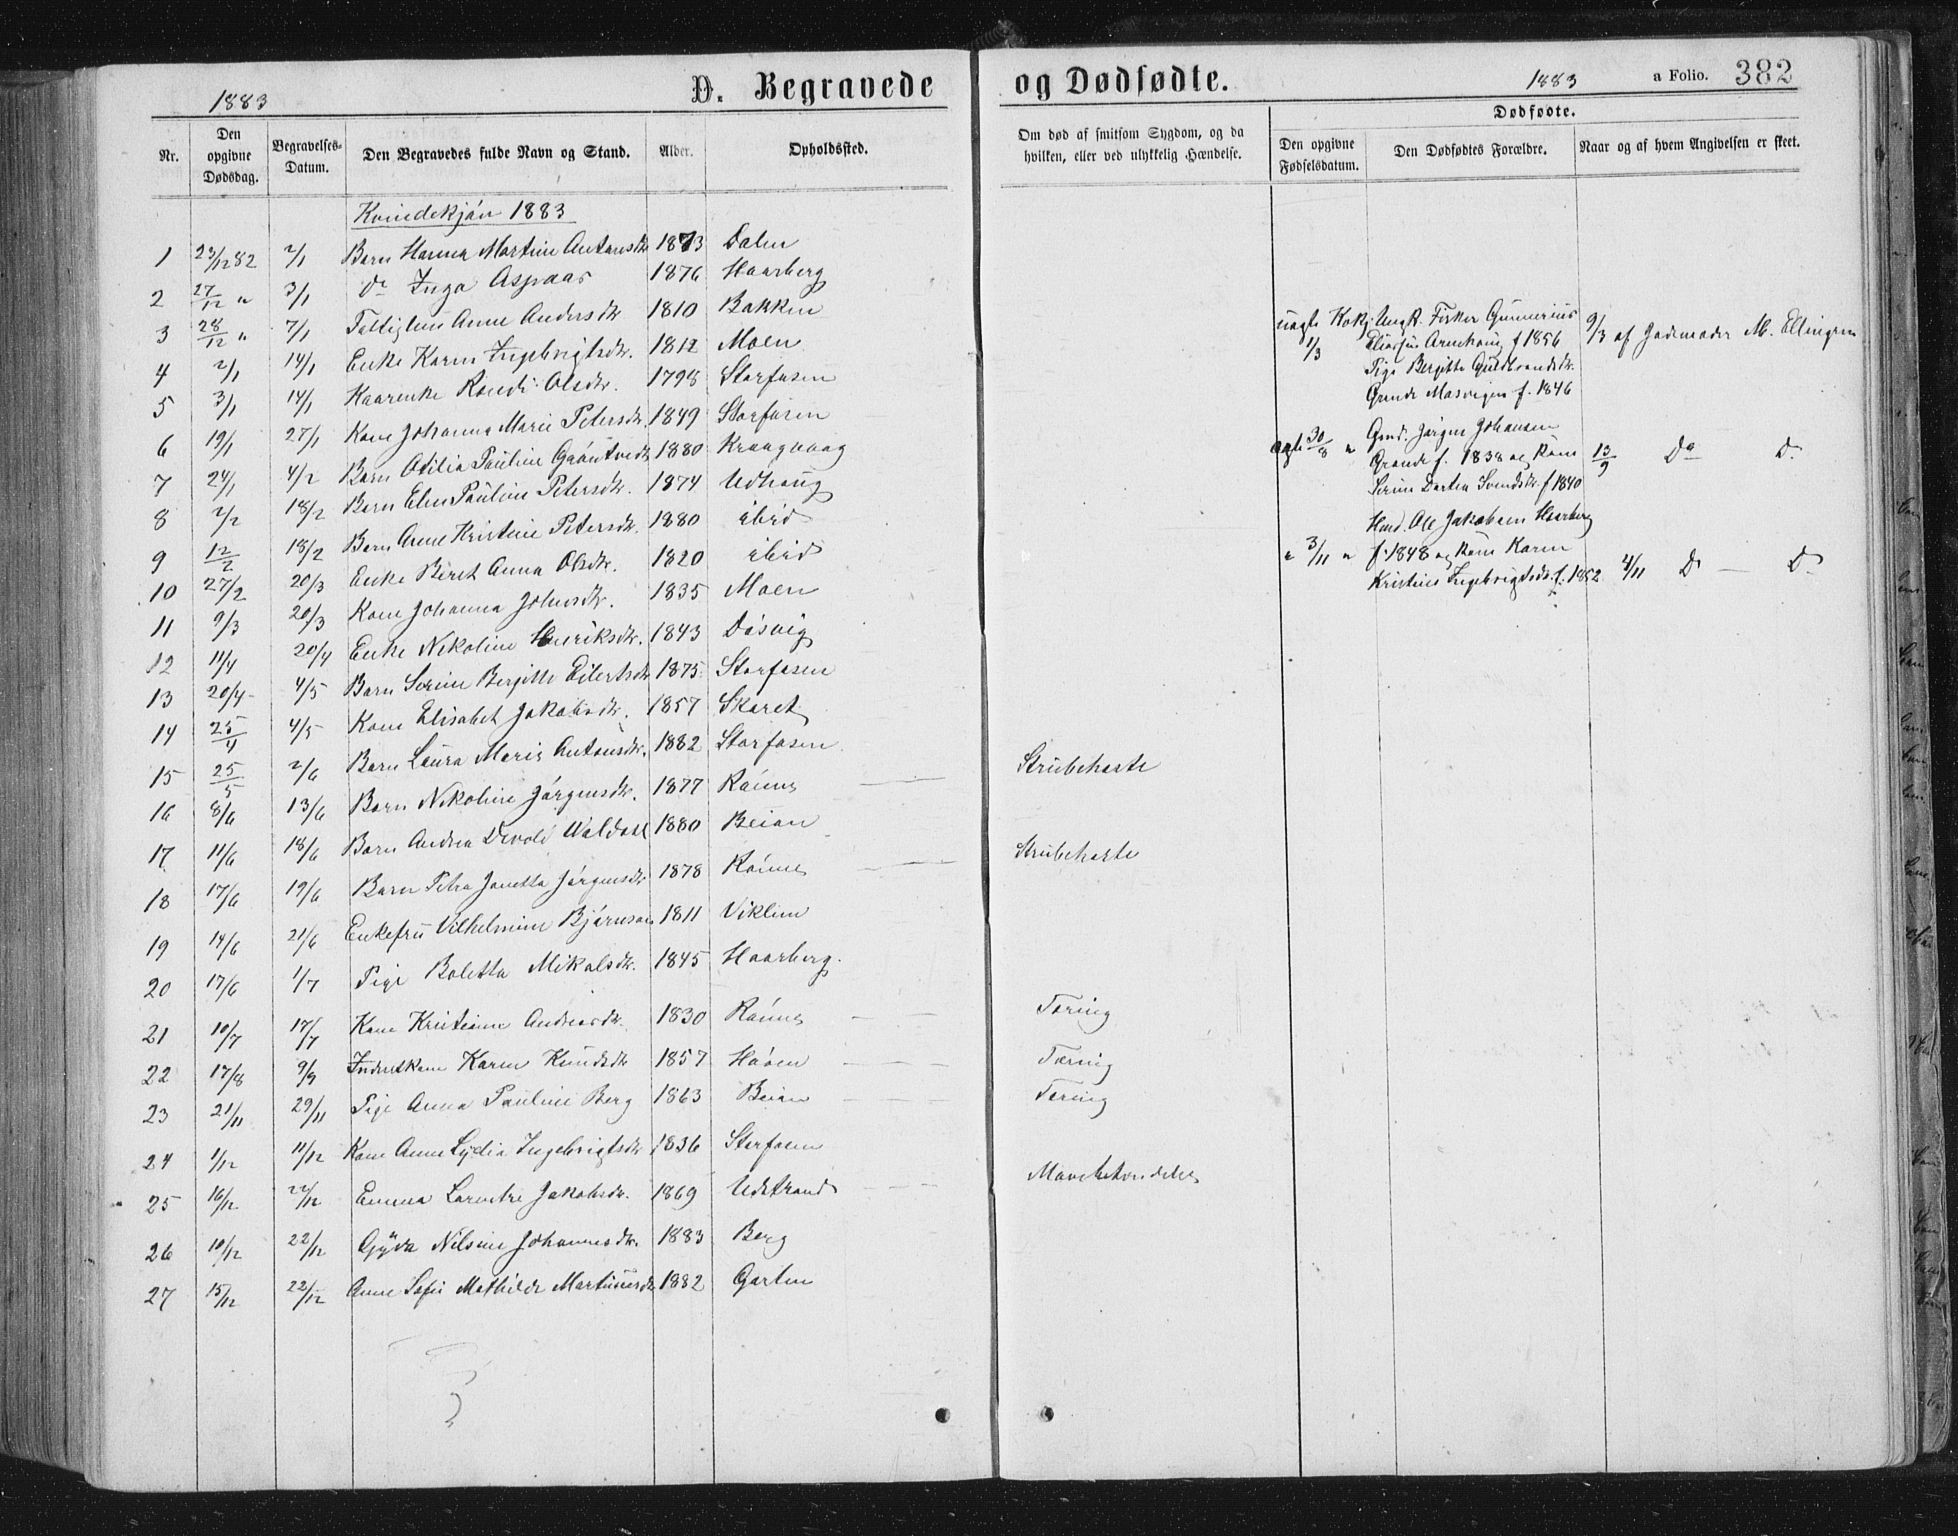 1883
D. Begravede
og Dødfødte.
1883
a Folio.
382
Nr.
Den opgivne Dødsdag.
Begravelses-Datum.
Den Begravedes fulde Navn og Stand.
Alder.
Opholdssted.
Om død af smitsom Sygdom, og da hvilken, eller ved ulykkelig Hændelse.
Dødfødte.
Den opgivne Fødselsdatum.
Den Dødfødtes Forældre.
Naar og af hvem Angivelsen er skeet.
Kvindekjøn 1883
1 23/12 82 2/1 Barn Hanna Martine Antonsdtr 1873 Dalen
2 27/12 " 3/1 do Inga Aspaas 1876 Haarberg
3 28/12 " 7/1 Fattiglem Anne Andersdtr 1810 Bakken
4 2/1 14/1 Enke Karen Ingebrigtsdtr. 1812 Moen
5 3/1 14/1 Kaarenke Randi Olsdtr. 1798 Storfosen
6 19/1 27/1 Kone Johanna Marie Petersdtr. 1849 Storfosen
7 24/1 4/2 Barn Otilia Pauline 1880 Kraagvaag
8 2/2 18/2 Barn Elen Pauline Petersdtr. 1874 Udhaug
9 12/2 18/2 Barn Anne Kristine Petersdtr. 1880 ibid
10 27/2 20/3 Enke Beret Anna Olsdtr. 1820 ibid
11 9/3 20/3 Kone Johanna Johnsdtr. 1835 Moen
12 11/4 20/4 Enke Nikoline Henriksdtr. 1843 Døsvig
13 20/4 4/5 Barn Serine Bergitte Eilertsdtr 1875 Storfosen
14 25/4 4/5 Kone Elisabet Jakobsdtr. 1857 Skaret
15 25/5 2/6 Barn Laura Marie Antonsdtr. 1882 Storfosen
16 8/6 13/6 Barn Nikoline Jørgensdtr. 1877 Rønne Strubehoste
17 11/6 18/6 Barn Andrea Devold Waldahl 1880 Beian
18 17/6 19/6 Barn Petra Janetta Jørgensdtr 1878 Rønne Strubehoste
19 14/6 21/6 Enkefru Vilhelmine Bjørnson 1811 Viklem
20 17/6 1/7 Pige Boletta Mikalsdtr. 1845 Haarberg.
21 10/7 17/7 Kone Kristianne Andreasdtr. 1830 Rønne Tæring
22 17/8 9/9 Inderstkone Karen Knudsdtr 1857 Høøen Tæring
23 21/11 29/11 Pige Anna Pauline Berg 1863 Beian Tæring
24 1/12 11/12 Kone Anne Lydia Ingebrigtsdtr 1836 Storfosen
25 16/12 22/12 Emma Larentze Jakobsdtr. 1869 Udstrand
26 10/12 22/12 Gyda Nilsine Johannesdtr. 1883 Berg
27 15/12 22/12 Anne Sofie Mathilde Martinusdtr 1882 Garten
uægte 1/3 Ungk. Fisker Gunnerius
f 1856 9/3 af Jordemoder M. Ellingsen
Pige Bergitte Guldbrandsdtr.
Grande Masvigen f. 1846
ægte 30/8 " Gmd. Jørgen Johansen
Grande f. 1838 og Kone 13/9 Do D.
Serine Dortea Svendsdtr. f 1840
Husm. Ole Jakobsen Haarberg
" 3/11 " f. 1848 og Kone Karen
Kristine Ingebrigtsdtr. f. 1852 4/11 D — D